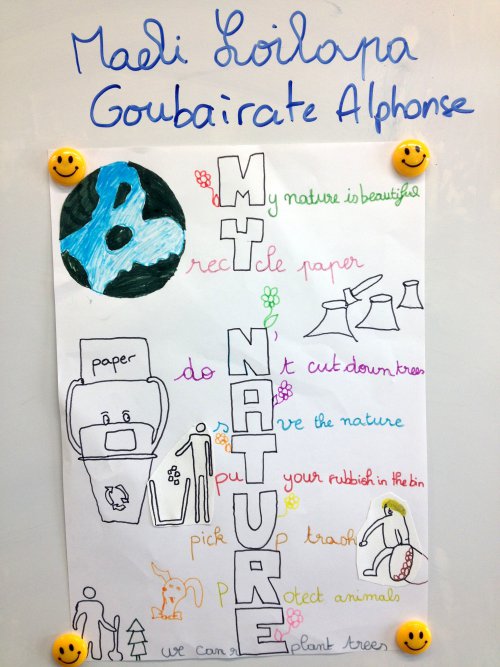 Maeli Loilapa
Goubairate Alphonse
My nature is beautiful
recYcle paper
paper
doN't cut down trees
sAve the nature
puT your rubbish in the bin
pick Up trash
pRotect animals
we can rEplant trees